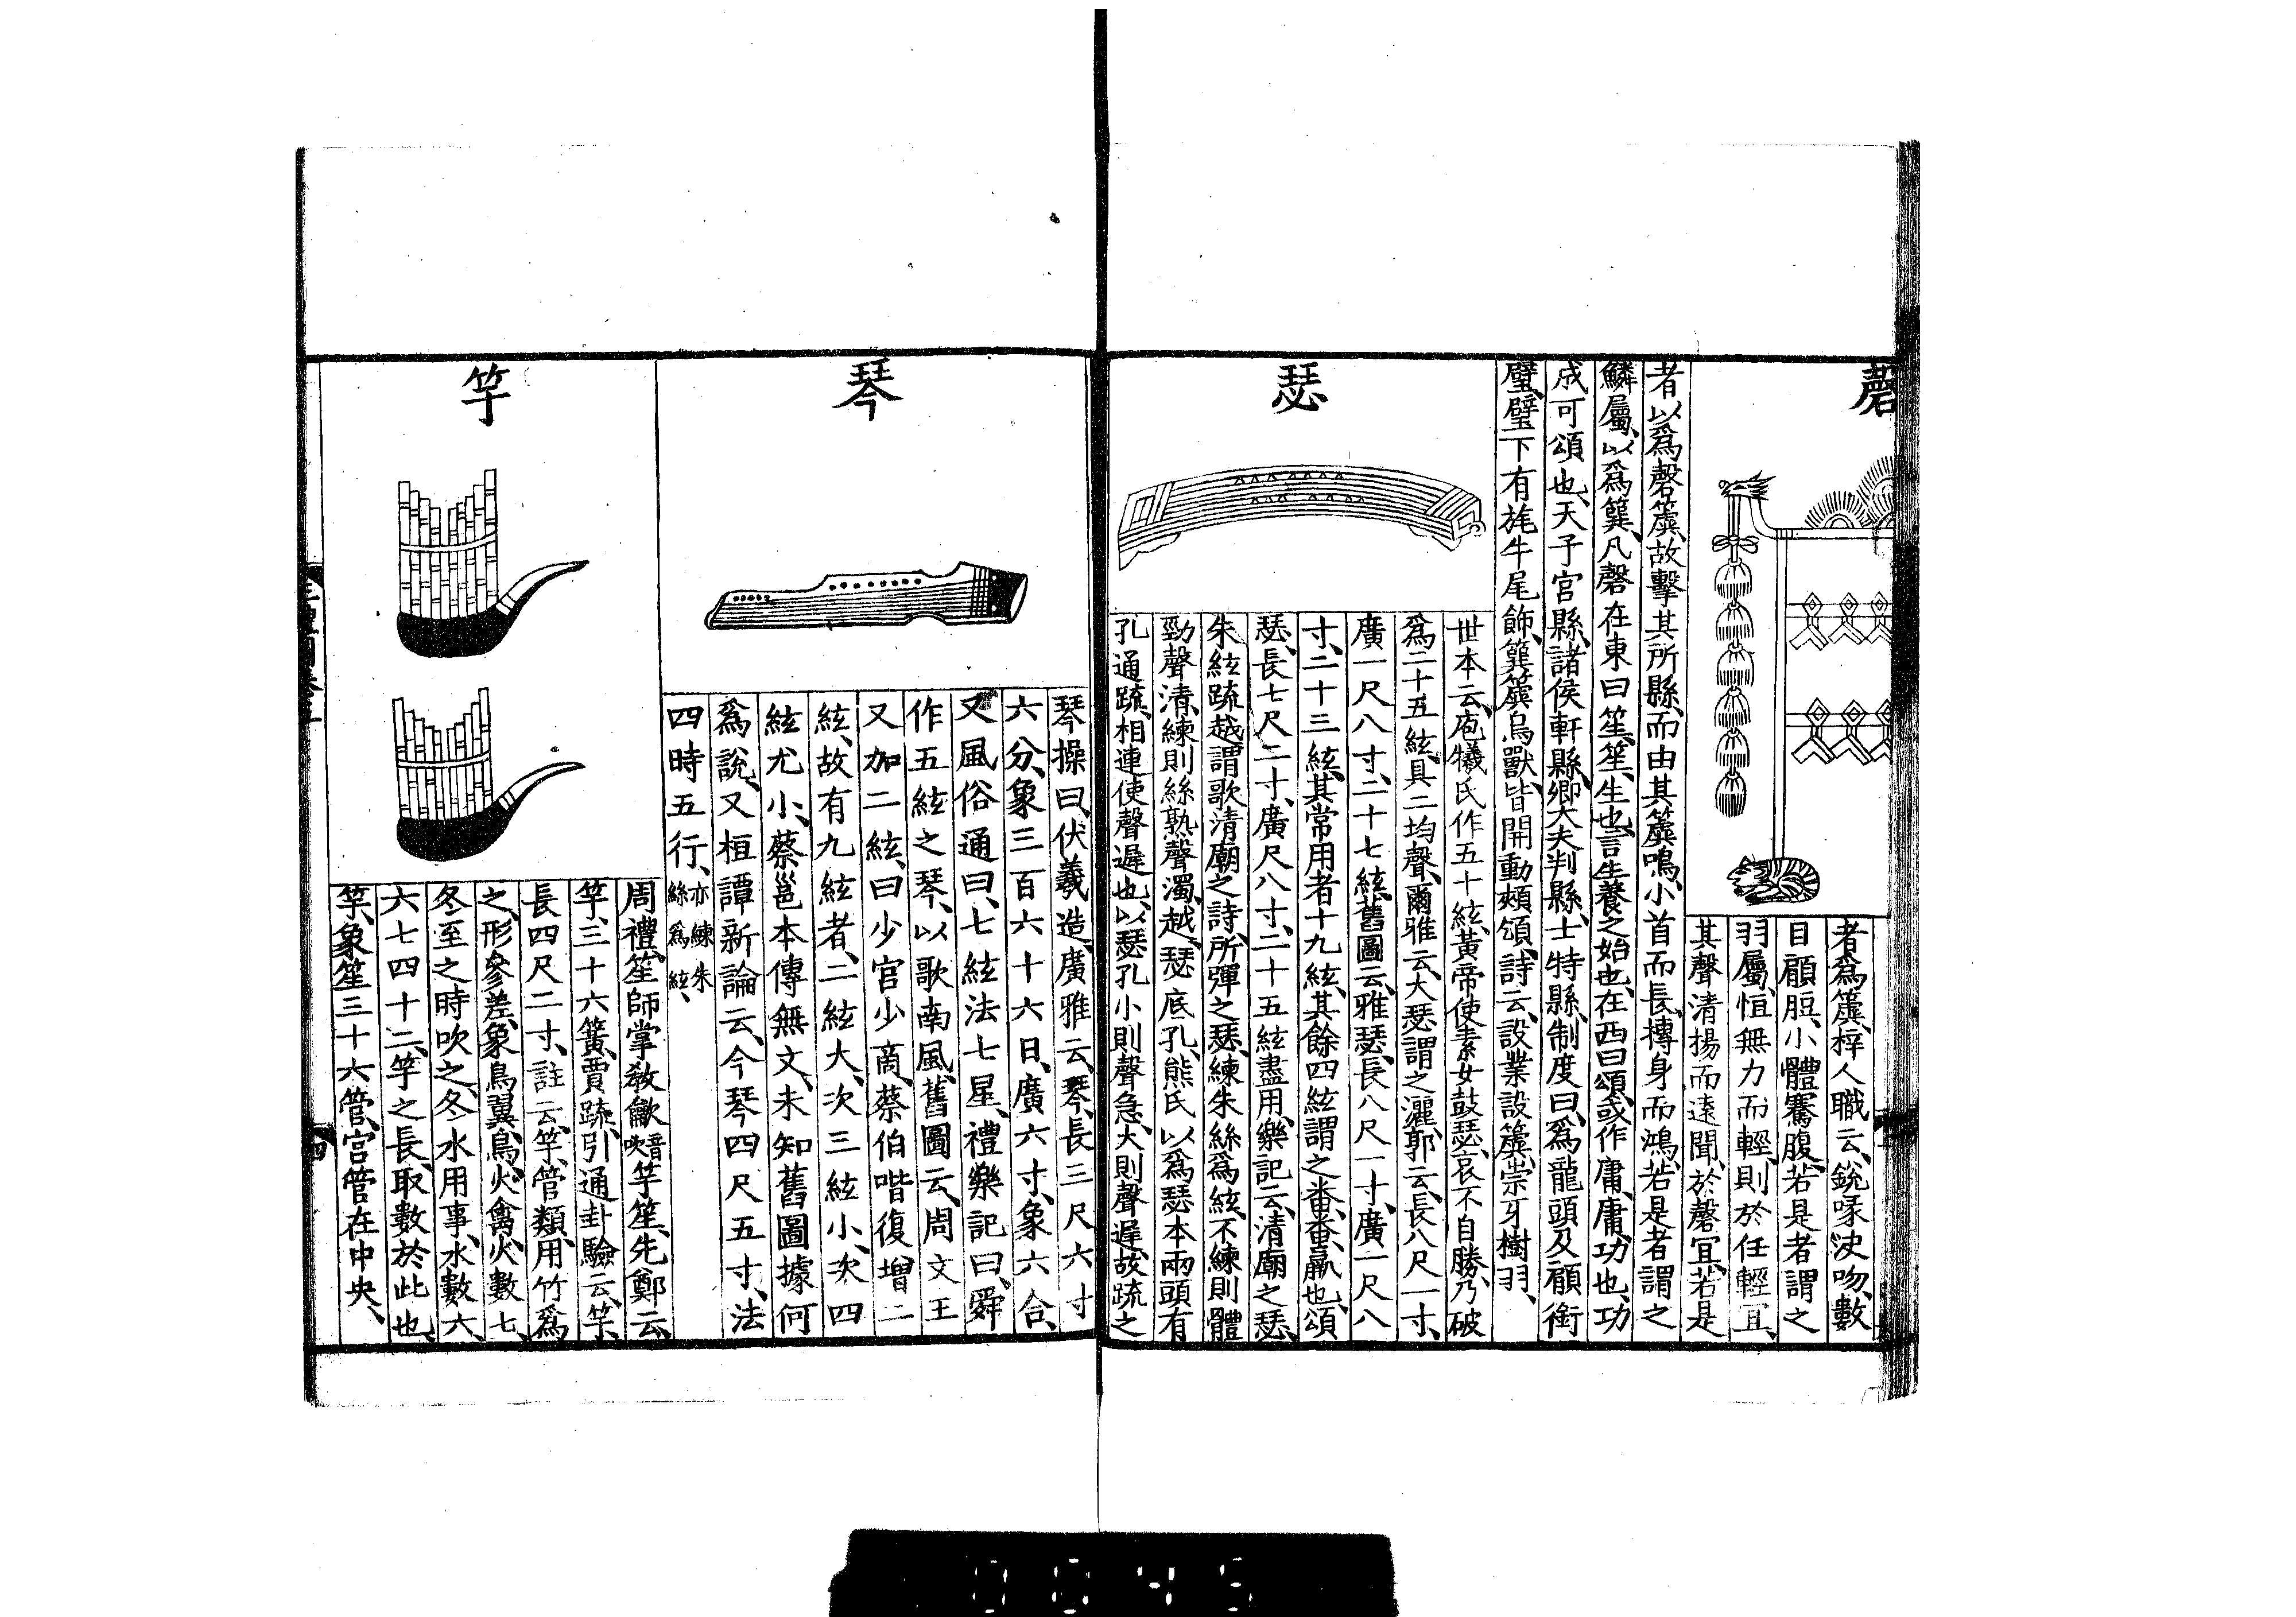 磬
者爲簴梓人職云銳喙決吻數
目顅脰小體騫腹若是者謂之
羽屬恒無力而輕則於任輕宜
其聲清揚而遠聞於磬宜若是
者以爲磬簴故擊其所縣而由其簴鳴小首而長摶身而鴻若是者謂之
鱗屬以爲簨凡磬在東曰笙笙生也言生養之始也在西曰頌或作庸庸功也功
成可頌也天子宮縣諸侯軒縣卿大夫判縣士特縣制度曰爲龍頭及顅銜
璧璧下有旄牛尾飾簨簴鳥獸皆開動頰頌詩云設業設簴崇牙樹羽
瑟
世本云庖犧氏作五十絃黃帝使素女鼓瑟哀不自勝乃破
爲二十五絃具二均聲爾雅云大瑟謂之灑郭云長八尺一寸
廣一尺八寸二十七絃舊圖云雅瑟長八尺一寸廣一尺八
寸二十三絃其常用者十九絃其餘四絃謂之番番贏也頌
瑟長七尺二寸廣尺八寸二十五絃盡用樂記云清廟之瑟
朱絃疏越謂歌清廟之詩所彈之瑟練朱絲爲絃不練則體
勁聲清練則絲熟聲濁越瑟底孔熊氏以爲瑟本兩頭有
孔通疏相連使聲遲也以瑟孔小則聲急大則聲遲故疏之
琴
琴操曰伏羲造廣雅云琴長三尺六寸
六分象三百六十六日廣六寸象六合
又風俗通曰七絃法七星禮樂記曰舜
作五絃之琴以歌南風舊圖云周文王
又加二絃曰少宮少商蔡伯喈復增二
絃故有九絃者二絃大次三絃小次四
絃尤小蔡邕本傳無文未知舊圖據何
爲說又桓譚新論云今琴四尺五寸法
四時五行亦練朱絲爲絃
竽
周禮笙師掌教龡音吹竽笙先鄭云
竽三十六簧賈疏引通卦驗云竽
長四尺二寸註云竽管類用竹爲
之形參差象鳥翼鳥火禽火數七
冬至之時吹之冬水用事水數六
六七四十二竽之長取數於此也
竽象笙三十六管宮管在中央
三禮圖卷五
四
0045